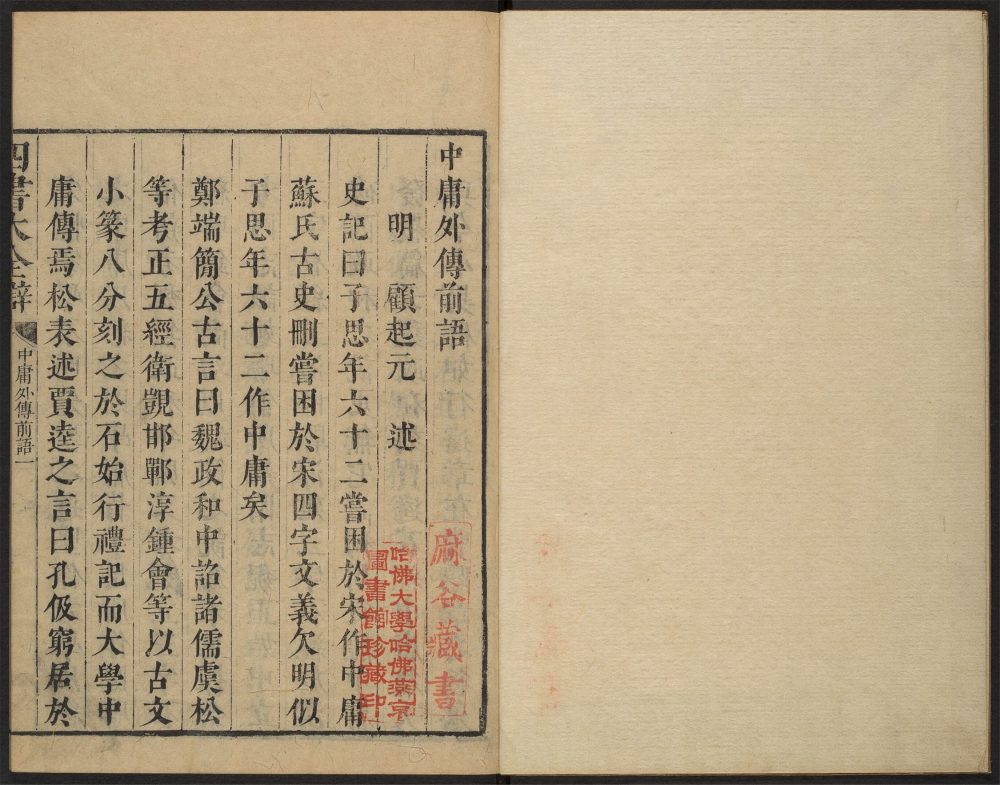 中庸外傳前語
明 顧起元 述
史記曰子思年六十二嘗困於宋作中庸
蘇氏古史刪嘗困於宋四字文義欠明似
子思年六十二作中庸矣
鄭端簡公古言曰魏政和中詔諸儒虞松
等考正五經衛覬邯鄲淳鍾會等以古文
小篆八分刻之於石始行禮記而大學中
庸傳焉松表述賈逵之言曰孔伋窮居於
四書大全辯
中庸外傳前語一
麻谷藏書
哈佛大學哈佛燕京
圖書館珍藏印